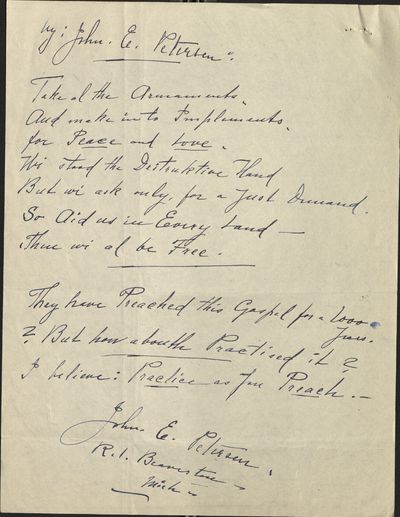 by: John. E. Petersen".
Take al the Armaments.
And make into Implements.
for Peace and Love.
Wi stood the Destruktive Hand
But wi ask only, for a Just Demand.
So Aid us in Every Land —
Then wi al be Free.
They have Preached this Gospel for a 1000
Years.
? But how abouth Practised it ?
I believe: Practice as You Preach. —
John. E. Petersen.
R. 1. Beaverton
Mich